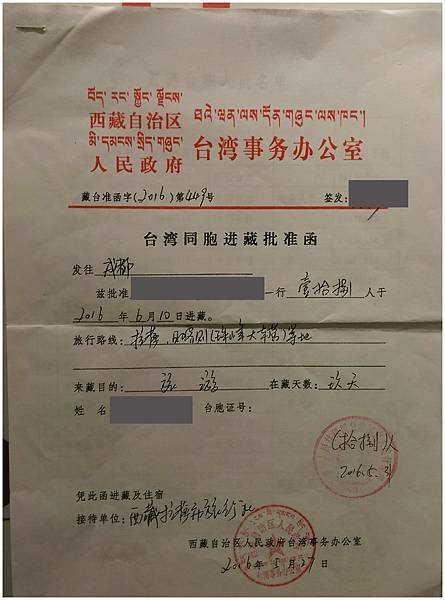 བོད་ རང་ སྐྱོང་ ལྗོངས་
西藏自治区
མི་དམངས་སྲིད་གཞུང་
人民政府
ཐའེ་ཝན་ལས་དོན་གཞུང་ལས་ཁང་།
台湾事务办公室
藏台准函字(2016)第449号 签发:
台湾同胞进藏批准函
发往 成都
兹批准 一行 壹拾捌 人于
2016 年 6月10日进藏。
旅行路线: 拉萨、日喀则(珠峰大本营)等地
来藏目的: 旅游 在藏天数: 玖天
姓名 台胞证号:
(拾捌)人
2016.5.31
凭此函进藏及住宿
接待单位: 西藏拉萨市旅行社
西藏自治区人民政府台湾事务办公室
2016年5月27日